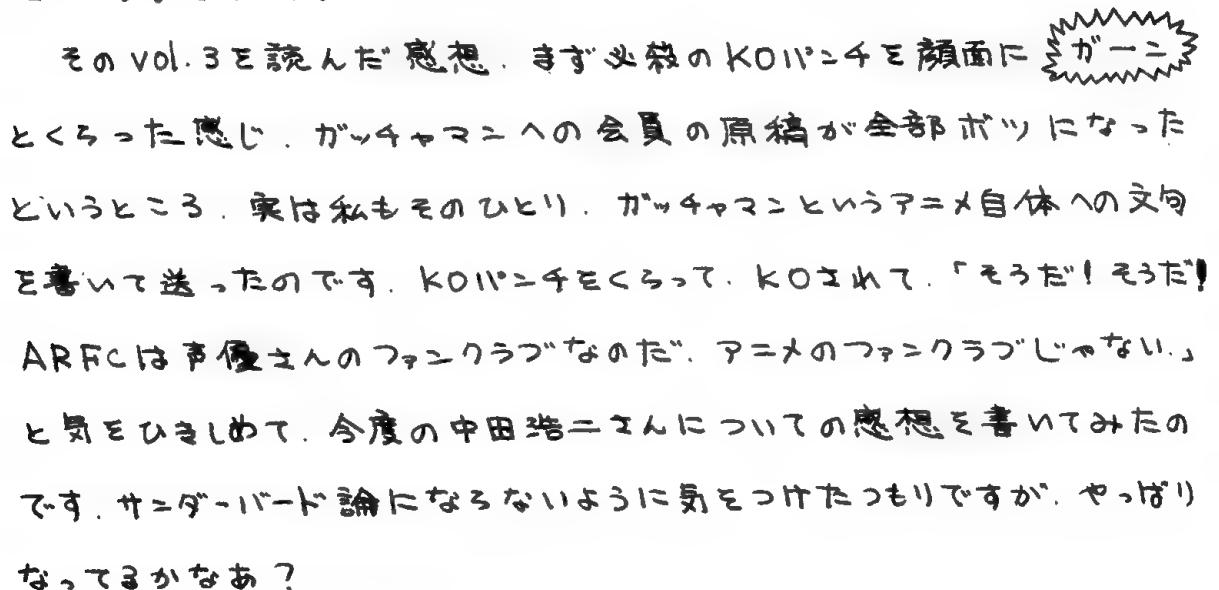 そのvol.3を読んだ感想.まず必殺のKOパンチを顔面に ガーン
とくらった感じ.ガッチャマンへの会員の原稿が全部ボツになった
というところ.実は私もそのひとり.ガッチャマンというアニメ自体への文句
を書いて送ったのです.KOパンチをくらって.KOされて.「そうだ!そうだ!
ARFCは声優さんのファンクラブなのだ.アニメのファンクラブじゃない.」
と気をひきしめて.今度の中田浩二さんについての感想を書いてみたの
です.サンダーバード論にならないように気をつけたつもりですが.やっぱり
なってるかなあ?